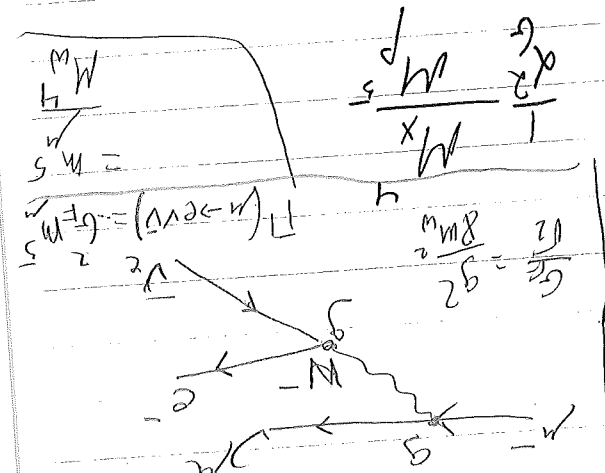 μ⁻ g ν_μ
W⁻ e⁻
g ν̄_e
G_F/√2 = g²/8m_w²
Γ(μ→eνν̄) = G_F² m_μ⁵
= m_μ⁵/M_w⁴
1/α_G² M_x⁴/M_p⁵